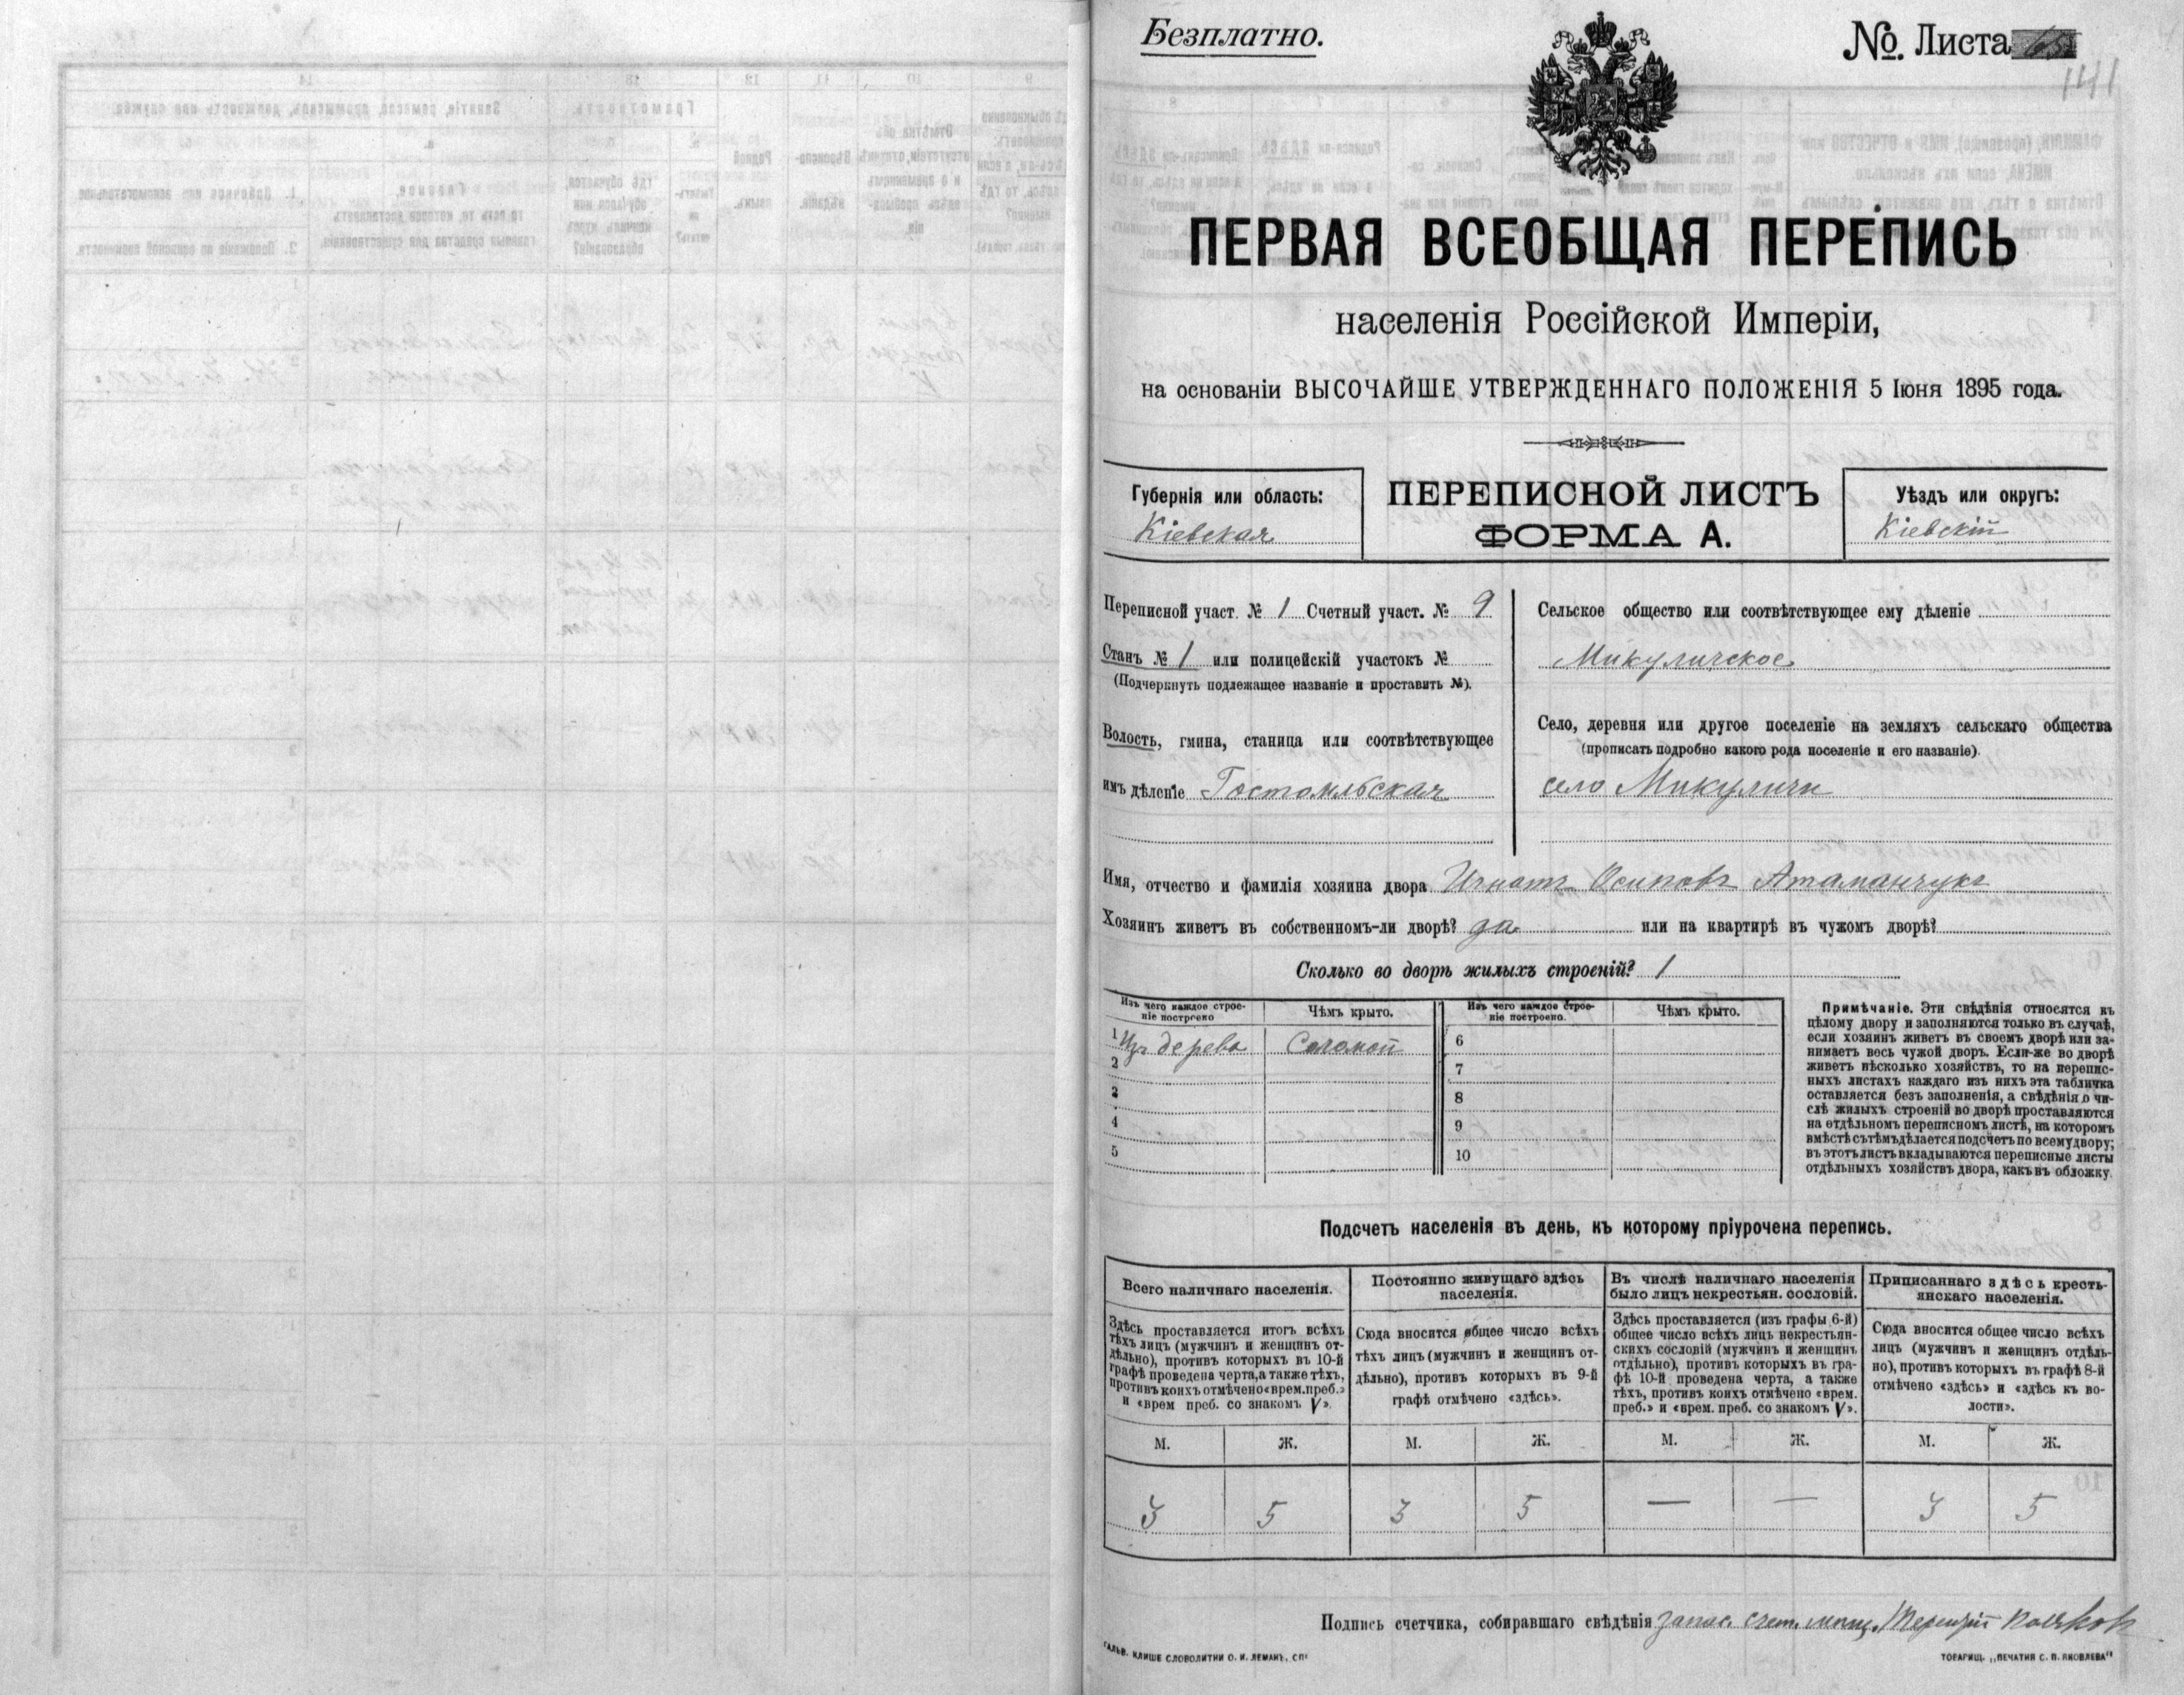 Безплатно.
№ Листа
141
ПЕРВАЯ ВСЕОБЩАЯ ПЕРЕПИСЬ
населенія Россійской Имперіи,
на основаніи ВЫСОЧАЙШЕ УТВЕРЖДЕННАГО ПОЛОЖЕНІЯ 5 Іюня 1895 года.
Губернія или область:
Кіевская
ПЕРЕПИСНОЙ ЛИСТЪ
ФОРМА А.
Уѣздъ или округъ:
Кіевскій
Переписной участ. № 1 Счетный участ. № 9
Станъ № 1 или полицейскій участокъ №
(Подчеркнуть подлежащее названіе и проставить №).
Волость, гмина, станица или соотвѣтствующее
имъ дѣленіе Гостомльская
Сельское общество или соотвѣтствующее ему дѣленіе
Микуличское
Село, деревня или другое поселеніе на земляхъ сельскаго общества
(прописать подробно какого рода поселеніе и его названіе).
село Микуличи
Имя, отчество и фамилія хозяина двора Игнатъ Осиповъ Атаманчукъ
Хозяинъ живетъ въ собственномъ-ли дворѣ? да или на квартирѣ въ чужомъ дворѣ?
Сколько во дворѣ жилыхъ строеній? 1
Изъ чего каждое строе-
ніе построено
Чѣмъ крыто.
Изъ чего каждое строе-
ніе построено.
Чѣмъ крыто.
1 Изъ дерева Соломой
2
3
4
5
6
7
8
9
10
Примѣчаніе. Эти свѣдѣнія относятся къ
цѣлому двору и заполняются только въ случаѣ,
если хозяинъ живетъ въ своемъ дворѣ или за-
нимаетъ весь чужой дворъ. Если-же во дворѣ
живетъ нѣсколько хозяйствъ, то на перепис-
ныхъ листахъ каждаго изъ нихъ эта табличка
оставляется безъ заполненія, а свѣдѣнія о чи-
слѣ жилыхъ строеній во дворѣ проставляются
на отдѣльномъ переписномъ листѣ, на которомъ
вмѣстѣ съ тѣмъ дѣлается подсчетъ по всему двору;
въ этотъ листъ вкладываются переписные листы
отдѣльныхъ хозяйствъ двора, какъ въ обложку.
Подсчетъ населенія въ день, къ которому пріурочена перепись.
Всего наличнаго населенія.
Здѣсь проставляется итогъ всѣхъ
тѣхъ лицъ (мужчинъ и женщинъ от-
дѣльно), противъ которыхъ въ 10-й
графѣ проведена черта, а также тѣхъ,
противъ коихъ отмѣчено «врем. преб.»
и «врем преб. со знакомъ V».
Постоянно живущаго здѣсь
населенія.
Сюда вносится общее число всѣхъ
тѣхъ лицъ (мужчинъ и женщинъ от-
дѣльно), противъ которыхъ въ 9-й
графѣ отмѣчено «здѣсь».
Въ числѣ наличнаго населенія
было лицъ некрестьян. сословій.
Здѣсь проставляется (изъ графы 6-й)
общее число всѣхъ лицъ некрестьян-
скихъ сословій (мужчинъ и женщинъ
отдѣльно), противъ которыхъ въ гра-
фѣ 10-й проведена черта, а также
тѣхъ, противъ коихъ отмѣчено «врем.
преб.» и «врем. преб. со знакомъ V».
Приписаннаго здѣсь кресть-
янскаго населенія.
Сюда вносится общее число всѣхъ
лицъ (мужчинъ и женщинъ отдѣль-
но), противъ которыхъ въ графѣ 8-й
отмѣчено «здѣсь» и «здѣсь къ во-
лости».
М. Ж. М. Ж. М. Ж. М. Ж.
3 5 3 5 — — 3 5
Подпись счетчика, собиравшаго свѣдѣнія запас. счет.
ГАЛЬВ. КЛИШЕ СЛОВОЛИТНИ О. И. ЛЕМАНЪ, СПБ
ТОВАРИЩ. „ПЕЧАТНЯ С. П. ЯКОВЛЕВА"